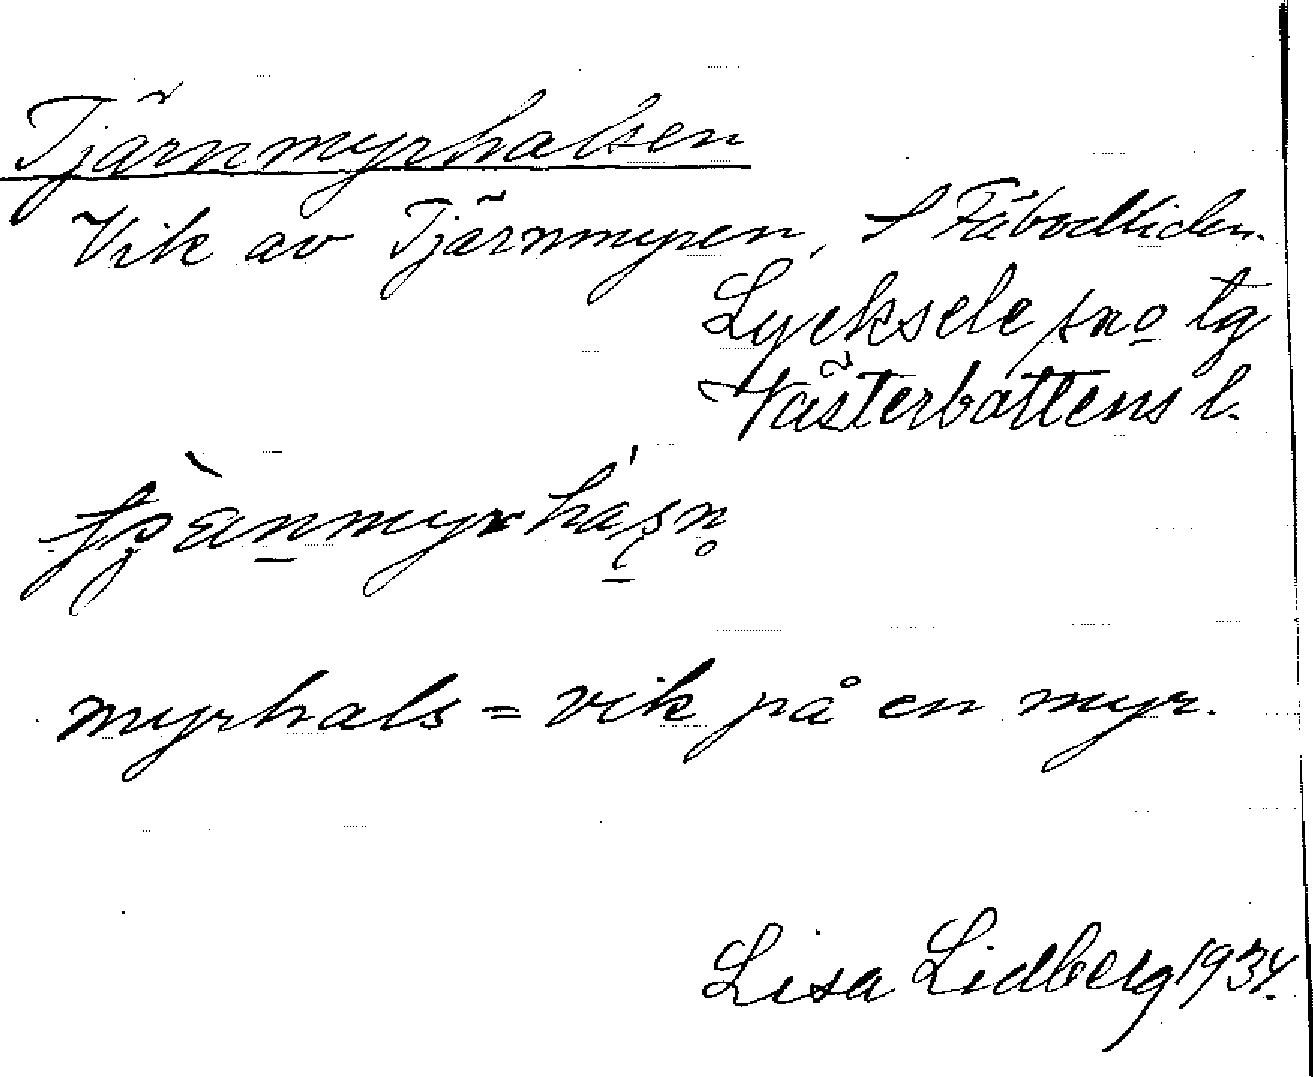 Tjärnmyrhalsen
Vik av Tjärnmyren, S Fäbodliden.
Lycksele sn o tg
Västerbottens l.
myrhals = vik på en myr.
Lisa Lidberg 1934.